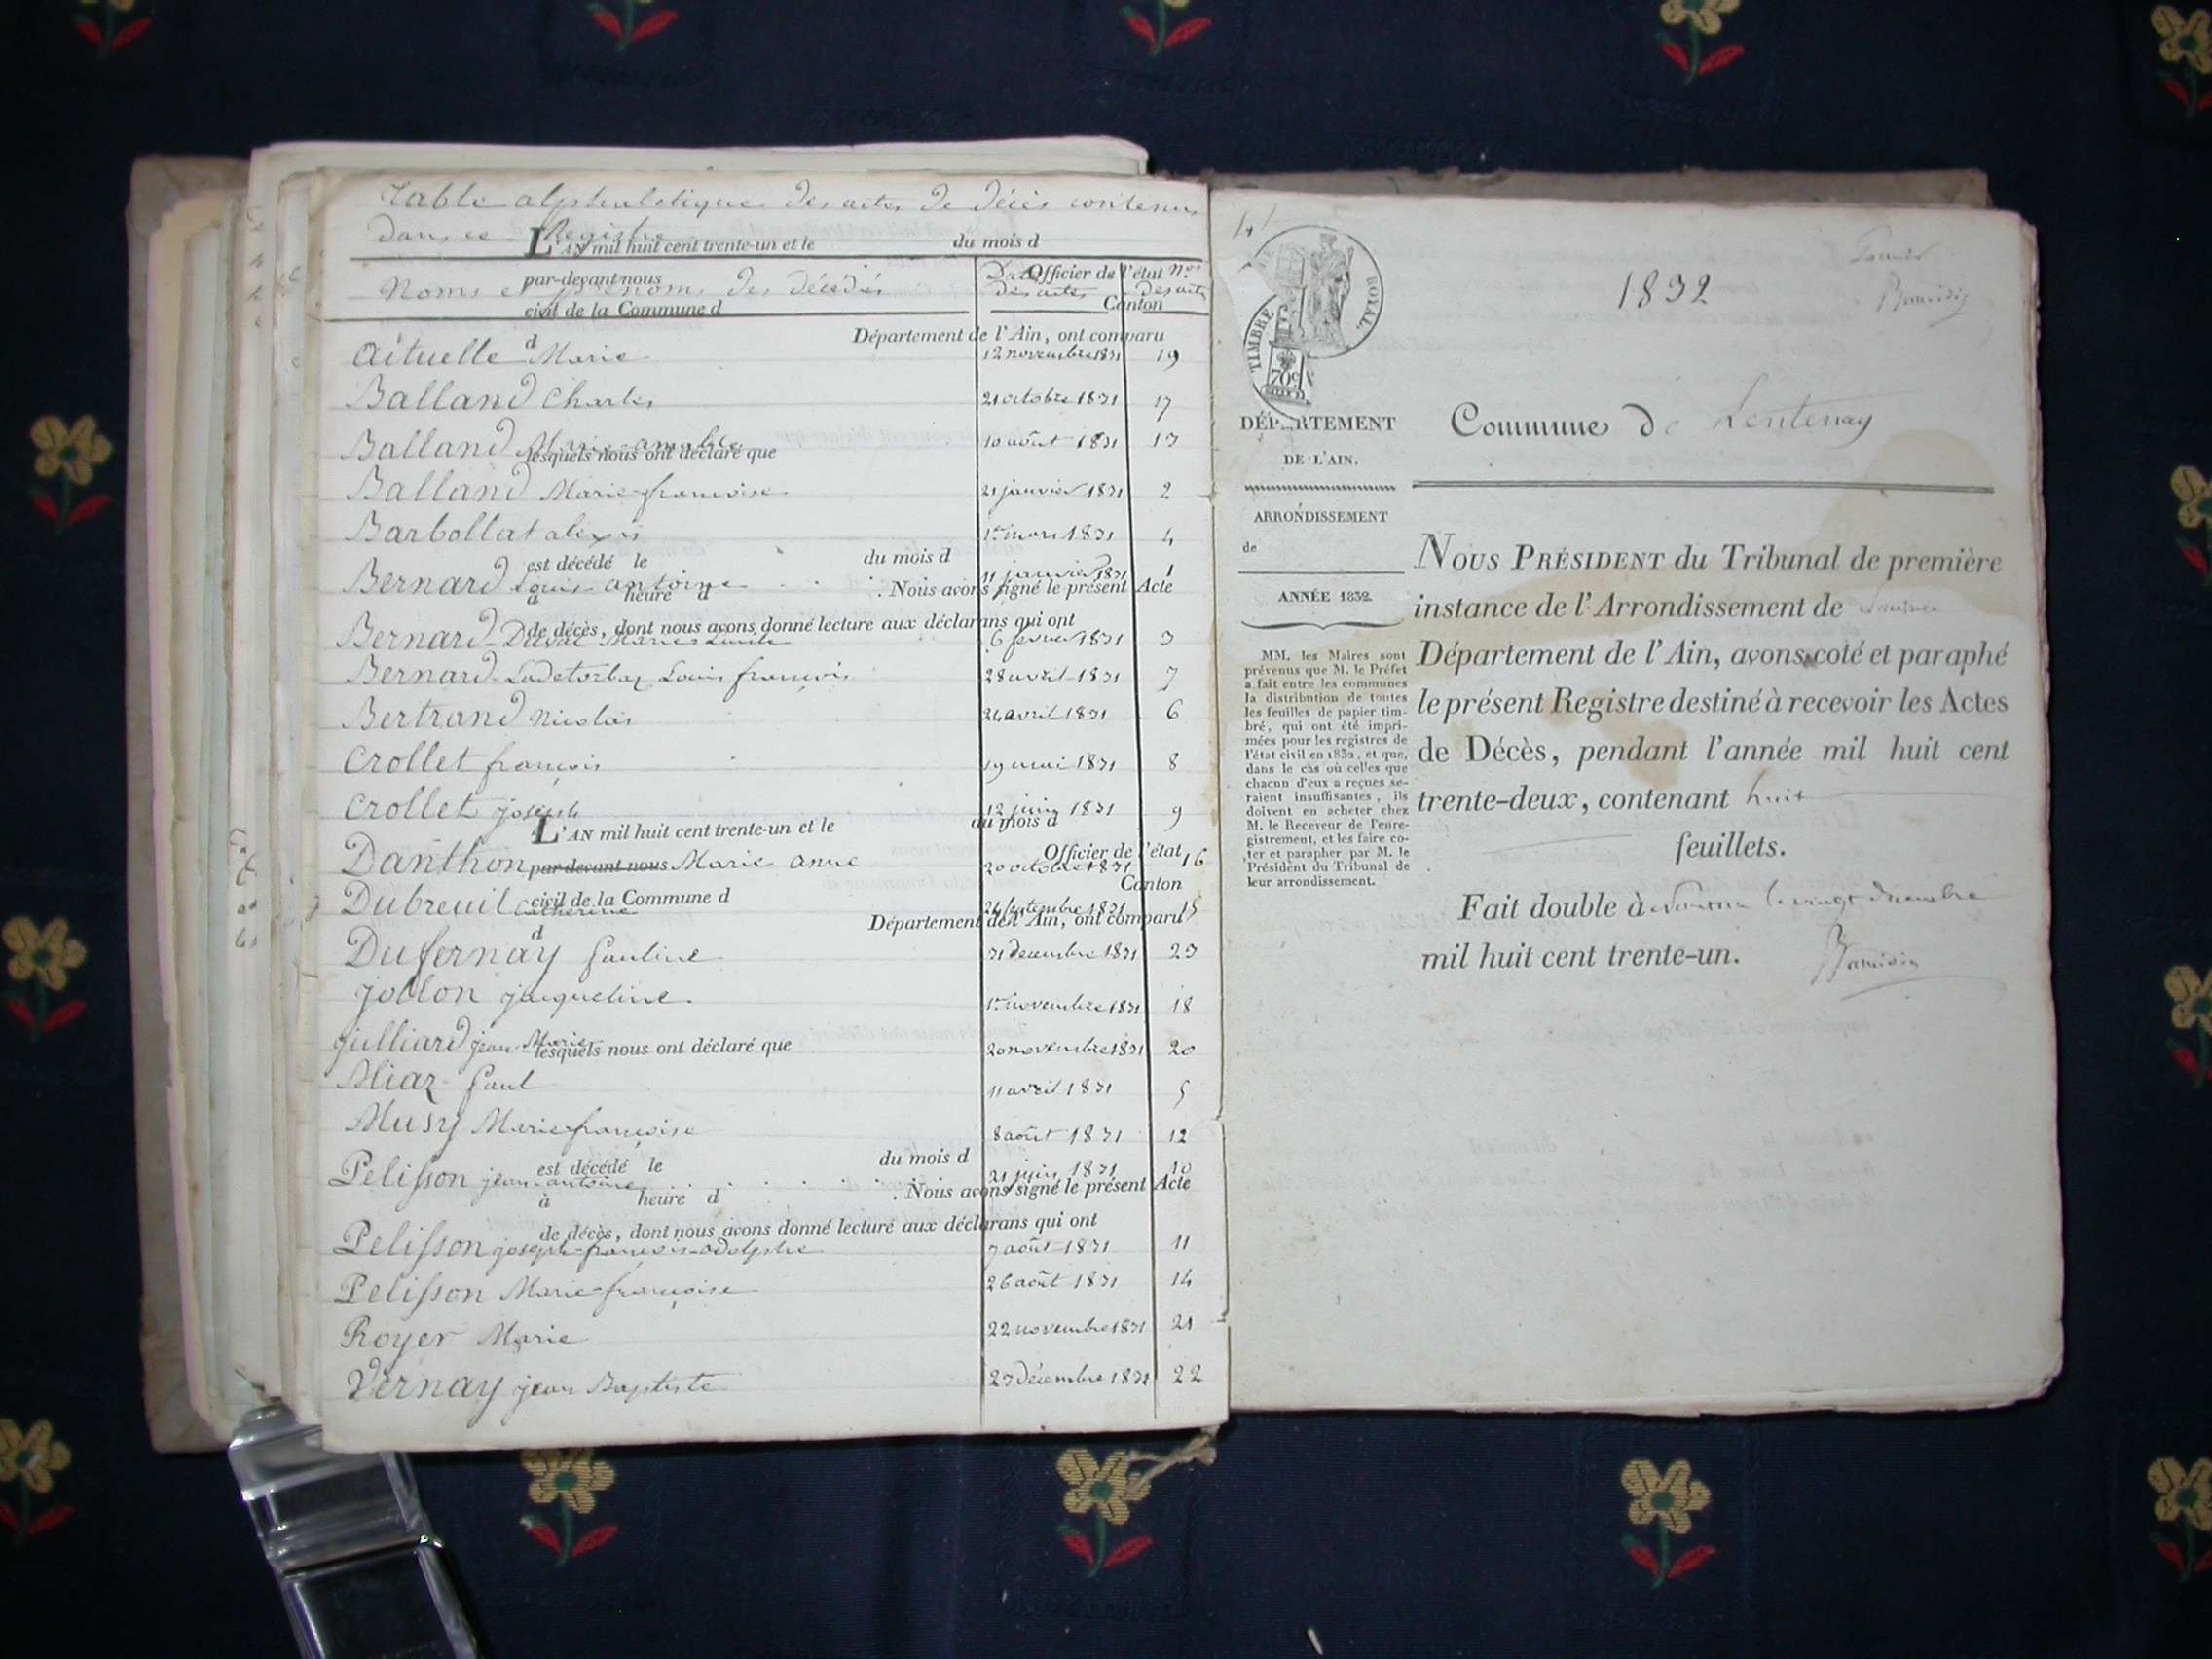 Table alphabetique des actes de décès contenus
dans ce Registre
L'AN mil huit cent trente-un et le du mois d
par-devant nous Officier de l'état
Noms et prénoms des décédés Dates des actes Nos des actes
civil de la Commune d Canton
d Département de l'Ain, ont comparu
Aituelle Marie 12 novembre 1831 19
Balland Charles 21 octobre 1831 17
Balland Marie-amable 10 août 1831 13
lesquels nous ont déclaré que
Balland Marie-françoise 21 janvier 1831 2
Barbollat alexis 1er mars 1831 4
est décédé le du mois d
Bernard Louis antoine 11 janvier 1831 1
à heure d . Nous avons signé le présent Acte
de décès, dont nous avons donné lecture aux déclarans qui ont
Bernard-Duval Marie 6 fevrier 1831 3
Bernard- Louis françois 28 avril 1831 7
Bertrand Nicolas 24 avril 1831 6
Crollet françois 19 mai 1831 8
Crollet joseph 12 juin 1831 9
L'AN mil huit cent trente-un et le du mois d
par-devant nous Officier de l'état
Danthon Marie anne 20 octobre 1831 16
civil de la Commune d Canton
Dubreuil Catherine 24 septembre 1831 15
d Département de l'Ain, ont comparu
Dufernay Pauline 31 decembre 1831 23
jollon jacqueline. 1er novembre 1831 18
julliard jean-Marie 20 novembre 1831 20
lesquels nous ont déclaré que
Miaz Paul 11 avril 1831 5
Musy Marie françoise 8 août 1831 12
est décédé le du mois d
Pelisson jean-antoine 21 juin 1831 10
à heure d . Nous avons signé le présent Acte
de décès, dont nous avons donné lecture aux déclarans qui ont
Pelisson joseph-françois-adolphe 7 août 1831 11
Pelisson Marie-françoise 26 août 1831 14
Royer Marie 22 novembre 1831 21
Vernay jean Baptiste 27 décembre 1831 22
1832
TIMBRE ROYAL.
70c
Commune de Lentenay
DÉPARTEMENT
DE L'AIN.
ARRONDISSEMENT
de
ANNÉE 1832.
MM. les Maires sont
prévenus que M. le Préfet
a fait entre les communes
la distribution de toutes
les feuilles de papier tim-
bré, qui ont été impri-
mées pour les registres de
l'état civil en 1832, et que,
dans le cas où celles que
chacun d'eux a reçues se-
raient insuffisantes, ils
doivent en acheter chez
M. le Receveur de l'enre-
gistrement, et les faire co-
ter et parapher par M. le
Président du Tribunal de
leur arrondissement.
NOUS PRÉSIDENT du Tribunal de première
instance de l'Arrondissement de
Département de l'Ain, avons coté et paraphé
le présent Registre destiné à recevoir les Actes
de Décès, pendant l'année mil huit cent
trente-deux, contenant huit
feuillets.
Fait double à le vingt décembre
mil huit cent trente-un.